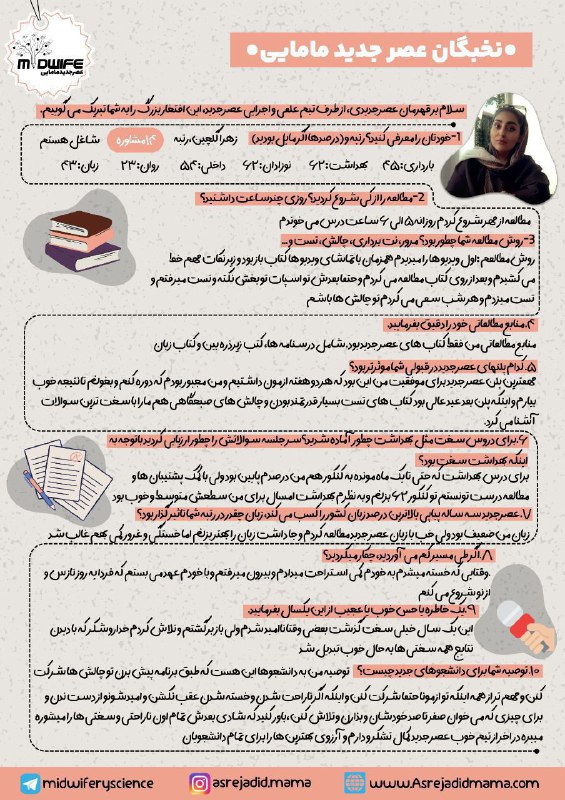 MIDWIFE
عصر جدید مامایی
•نخبگان عصر جدید مامایی•
سلام بر قهرمان عصر جدیدی، از طرف تیم علمی و اجرایی عصر جدید، این افتخار بزرگ را به شما تبریک می گوییم.
1-خودتان را معرفی کنید؟ رتبه و (درصدها اگر مایل بودید) زهرا گلچین، رتبه ۱۴ مشاوره شاغل هستم
بارداری: ۴۵ بهداشت: ۶۲ نوزادان: ۶۲ داخلی: ۵۴ روان: ۲۳ زبان: ۴۳
2-مطالعه را از کی شروع کردید؟ روزی چند ساعت داشتید؟
مطالعه از مهر شروع کردم روزانه ۵ الی ۶ ساعت درس می خوندم
3-روش مطالعه شما چطور بود؟ مرور، نت برداری، چالش، تست و...
روش مطالعم: اول ویدیوها را میدیدم همزمان با تماشای ویدیوها کتاب باز بود و زیر نکات مهم خط
می کشیدم و بعد از روی کتاب مطالعه می کردم و حتما بعدش تو اسپات نو بخش نکته و تست میرفتم و
تست میزدم و هر شب سعی می کردم تو چالش ها باشم
۴.منابع مطالعاتی خود را دقیق بفرمایید.
منابع مطالعاتی من فقط کتاب های عصر جدید بود، شامل درسنامه ها، کتب زیر ذره بین و کتاب زبان
۵.کدام پلنهای عصر جدید در قبولی شما موثرتر بود؟
مهمترین پلن عصر جدید برای موفقیت من این بود که هر دو هفته آزمون داشتیم و من مجبور بودم که دوره کنم و بخونم تا نتیجه خوب
بیارم و اینکه پلن بعد عید عالی بود کتاب های تست بسیار قدرتمند بودن و چالش های صبحگاهی هم ما را با سخت ترین سوالات
آشنا می کرد.
۶.برای دروس سخت مثل بهداشت چطور آماده شدید؟ سر جلسه سوالاتش را چطور ارزیابی کردید با توجه به
اینکه بهداشت سخت بود؟
برای درس بهداشت که حتی تا یک ماه مونده به کنکور هم من درصدم پایین بود ولی با کمک پشتیبان ها و
مطالعه درست تونستم تو کنکور ۶۲ بزنم و به نظرم بهداشت امسال برای من سطحش متوسط و خوب بود
۷.عصر جدید سه ساله پیاپی بالاترین درصد زبان کشور را کسب می کند، زبان چقدر در رتبه شما تاثیر گذار بود؟
زبان من ضعیف بود ولی خب با زبان عصر جدید مطالعه کردم و جا داشت زبان را بهتر بزنم اما خستگی و غرور کمی بهم غالب شد
۸.اگر طی مسیر کم می آوردید، چکار میکردید؟
وقتایی که خسته میشدم به خودم کمی استراحت میدادم و بیرون میرفتم و با خودم عهد می بستم که فردا یه روز تازس و
از نو شروع می کنم
۹.یک خاطره یا حس خوب یا عجیب از این یکسال بفرمایید.
این یک سال خیلی سخت گذشت بعضی وقتا ناامید شدم ولی باز برگشتم و تلاش کردم خدارو شکر که با دیدن
نتایج همه سختی ها به حال خوب تبدیل شد
۱۰.توصیه شما برای دانشجوهای جدید چیست؟ توصیه من به دانشجوها این هست که طبق برنامه پیش برن تو چالش ها شرکت
کنن و مهم تر از همه اینکه تو آزمونا حتما شرکت کنن و اینکه اگر ناراحت شدن و خسته شدن عقب نکشن و امیدشونو از دست ندن و
برای چیزی که می خوان صفر تا صد خودشان و بذارن و تلاش کنن، باور کنید که شادی بعدش تمام اون ناراحتی و سختی ها را میشوره
میبره در اخر از تیم خوب عصر جدید کمال تشکر و دارم و آرزوی بهترین ها را برای تمام دانشجویان
midwiferyscience
asrejadid.mama
www.Asrejadidmama.com